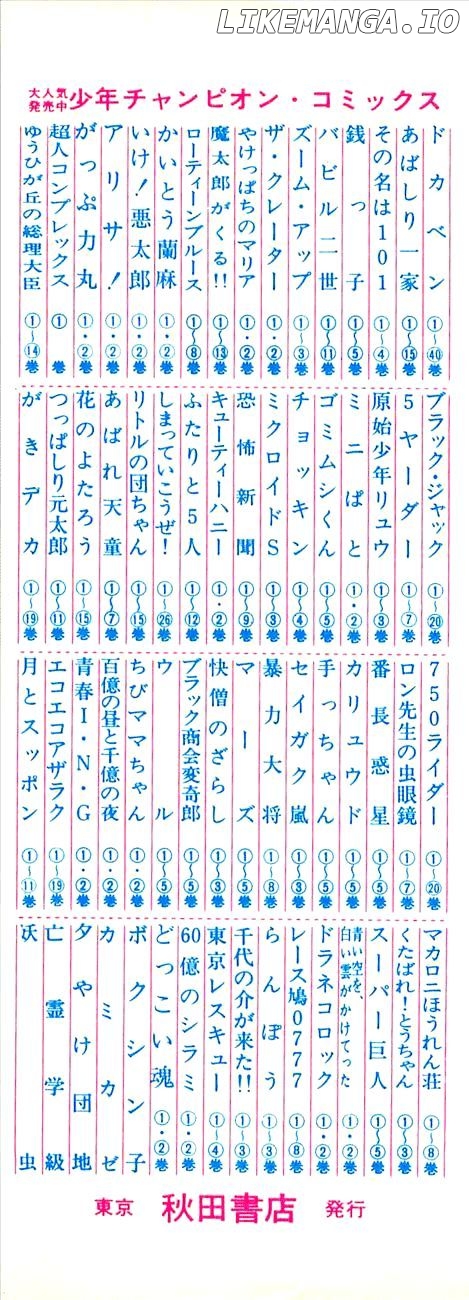 LIKEMANGA.IO
大人気発売中 少年チャンピオン・コミックス
ドカベン ①〜㊵巻
あばしり一家 ①〜⑮巻
その名は101 ①〜④巻
銭っ子 ①〜⑤巻
バビル二世 ①〜⑪巻
ズーム・アップ ①〜③巻
ザ・クレーター ①・②巻
やけっぱちのマリア ①・②巻
魔太郎がくる!! ①〜⑬巻
ローティーンブルース ①〜⑧巻
かいとう蘭麻 ①・②巻
いけ!悪太郎 ①・②巻
アリサ! ①・②巻
がっぷ力丸 ①・②巻
超人コンプレックス ① 巻
ゆうひが丘の総理大臣 ①〜⑭巻
ブラック・ジャック ①〜⑳巻
5ヤーダー ①〜⑦巻
原始少年リュウ ①〜③巻
ミニぱと ①・②巻
ゴミムシくん ①〜⑤巻
チョッキン ①〜④巻
ミクロイドS ①〜③巻
恐怖新聞 ①〜⑨巻
キューティーハニー ①・②巻
ふたりと5人 ①〜⑫巻
しまっていこうぜ! ①〜㉖巻
リトルの団ちゃん ①〜⑮巻
あばれ天童 ①〜⑦巻
花のよたろう ①〜⑮巻
つっぱしり元太郎 ①〜⑪巻
がきデカ ①〜⑲巻
750ライダー ①〜⑳巻
ロン先生の虫眼鏡 ①〜⑦巻
番長惑星 ①〜⑤巻
カリュウド ①〜⑤巻
手っちゃん ①〜⑤巻
セイガク嵐 ①〜③巻
暴力大将 ①〜⑧巻
マーズ ①〜⑤巻
快僧のざらし ①〜③巻
ブラック商会変奇郎 ①〜⑤巻
ウル ①〜⑤巻
ちびママちゃん ①〜⑤巻
百億の昼と千億の夜 ①・②巻
青春I・N・G ①・②巻
エコエコアザラク ①〜⑲巻
月とスッポン ①〜⑪巻
マカロニほうれん荘 ①〜⑧巻
くたばれ!とうちゃん ①〜③巻
スーパー巨人 ①〜⑤巻
青い空を、白い雲がかけてった ①・②巻
ドラネコロック ①・②巻
レース鳩0777 ①〜⑧巻
らんぽう ①〜③巻
千代の介が来た!! ①〜③巻
東京レスキュー ①〜④巻
60億のシラミ ①・②巻
どっこい魂 ①・②巻
ボクシン子
カミカゼ
夕やけ団地
亡霊学級
妖虫
東京 秋田書店 発行